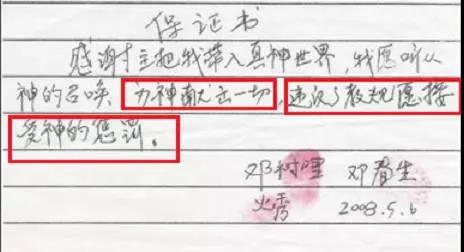 保证书
感谢主把我带入真神世界,我愿听从
神的召唤 为神献出一切,违反了教规愿接
受神的惩罚。
邓树哩 邓春生
火秀 2008.5.6